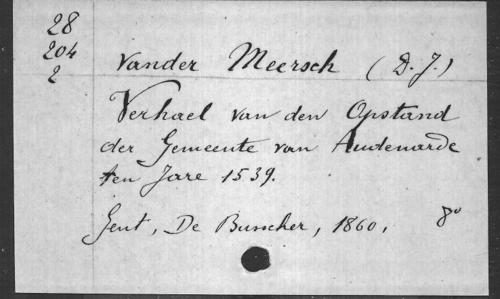 28
204
2
Vander Meersch (D. J.)
Verhael van den Opstand
der Gemeente van Audenarde
ten Jare 1539.
Gent, De Busscher, 1860, 8°